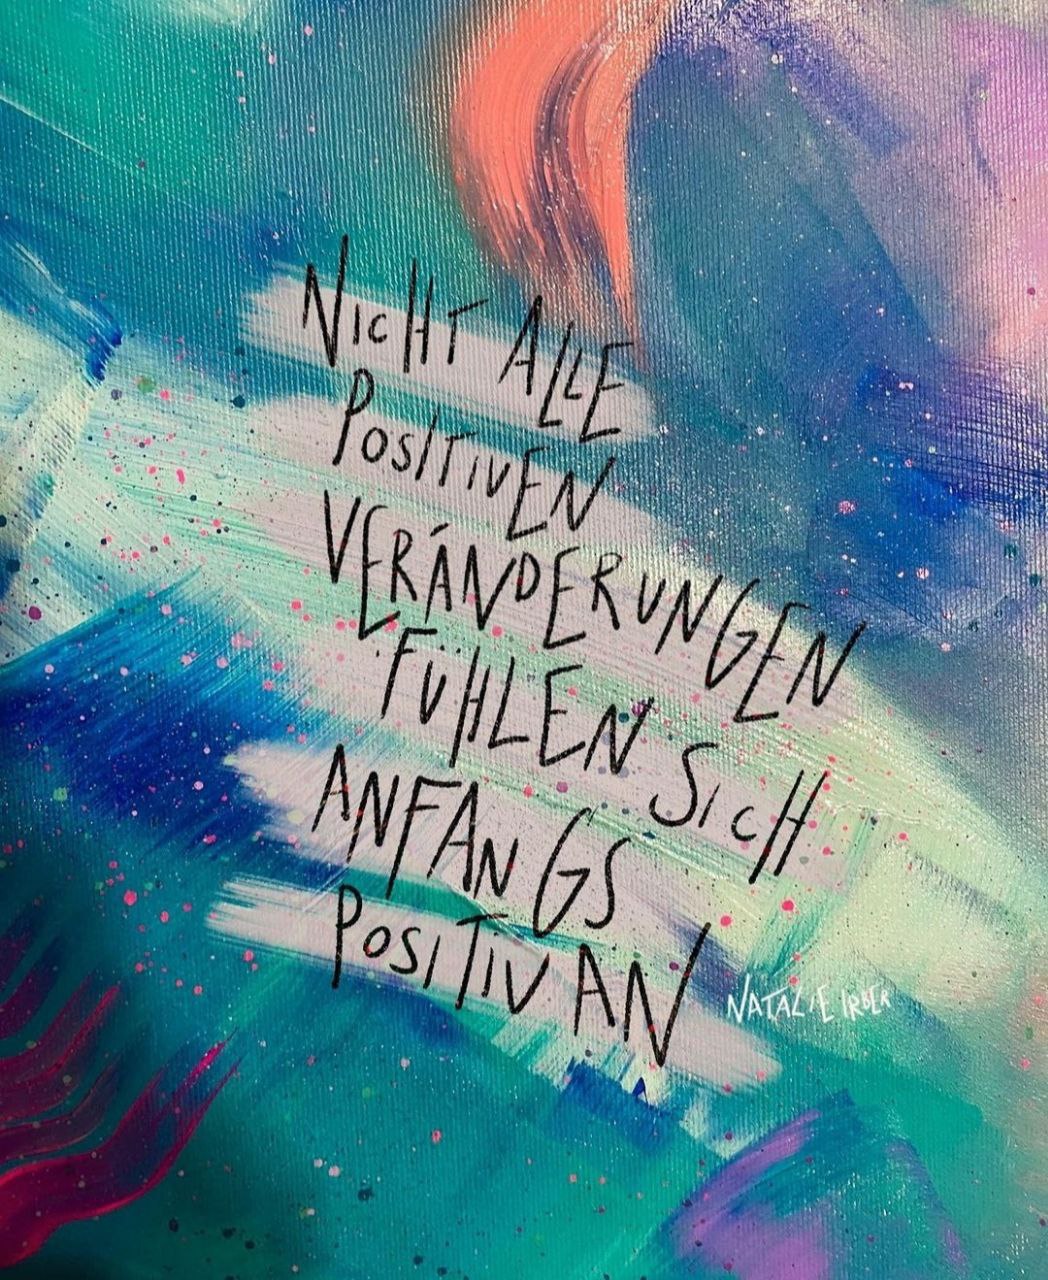 NICHT ALLE
POSITIVEN
VERÄNDERUNGEN
FÜHLEN SICH
ANFANGS
POSITIV AN
NATALIE IRBER